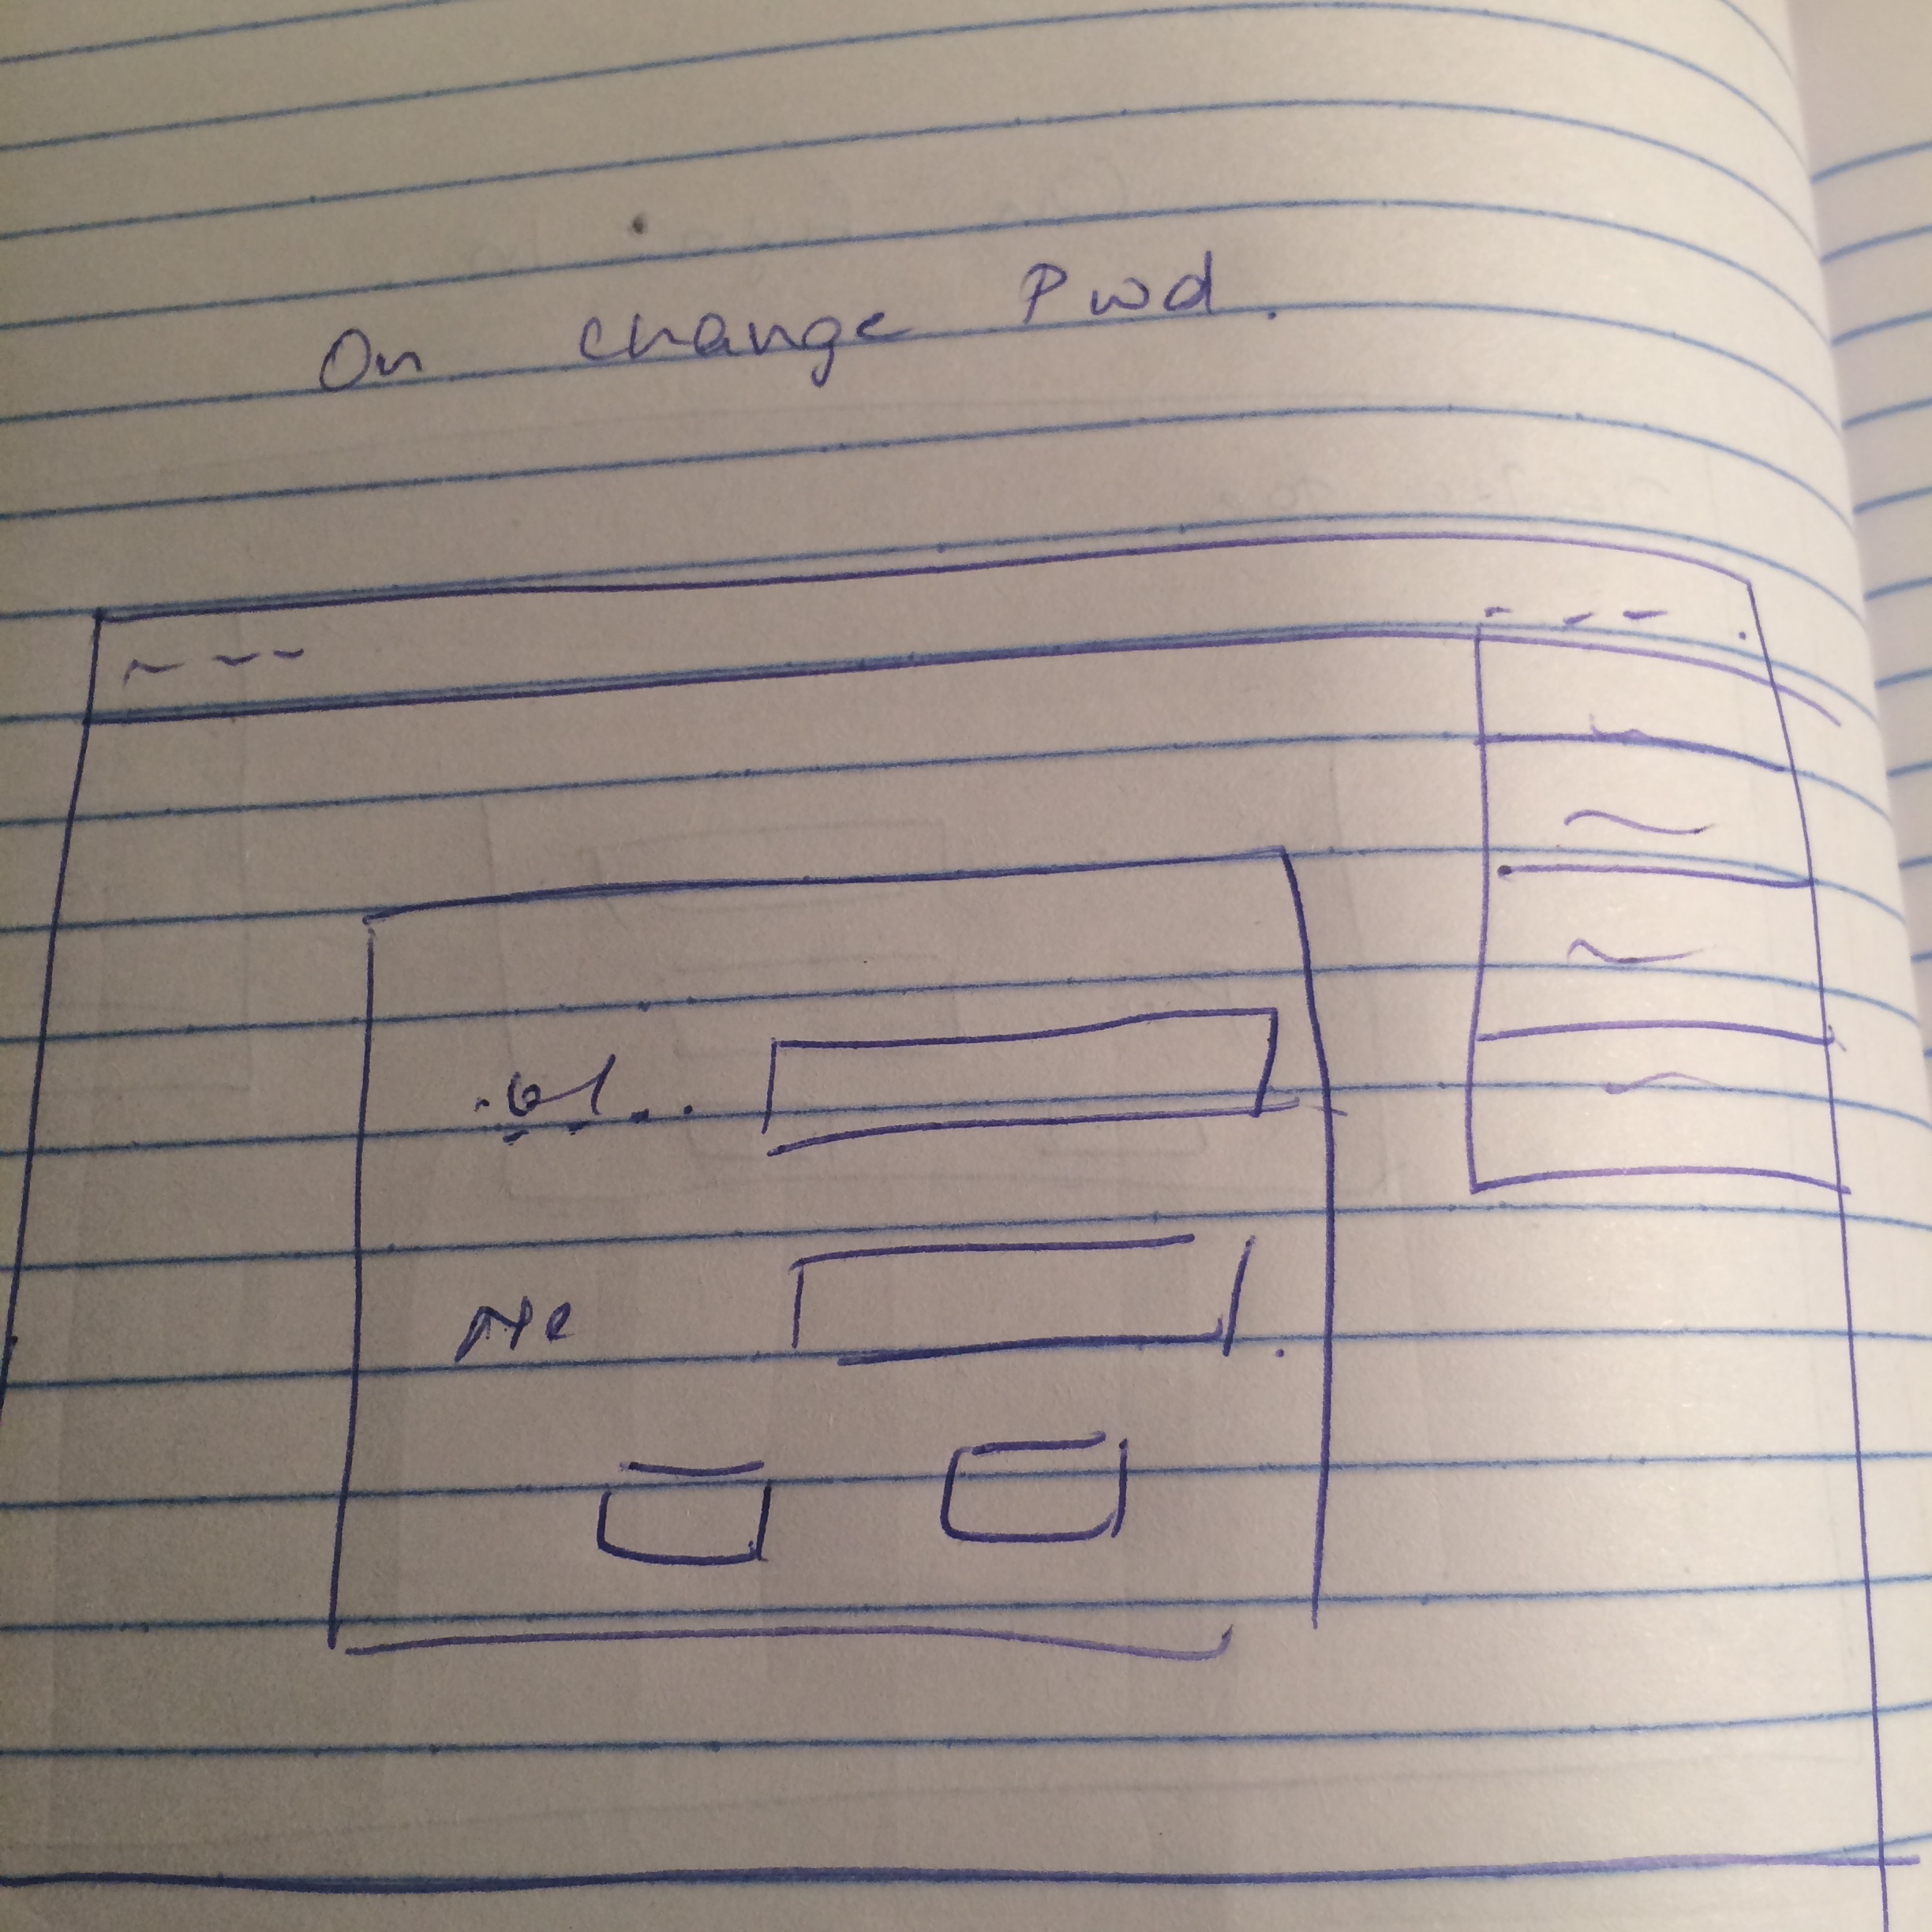 On change Pwd.
Ne